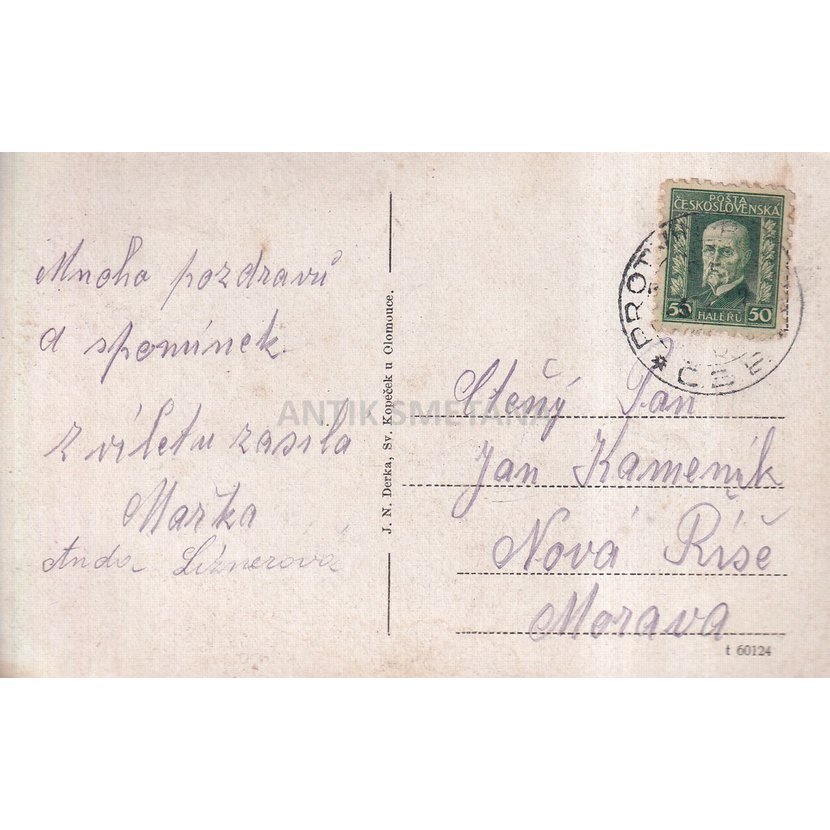 Mnoho pozdravů
a spomínek
z víletu zasílá
Mařka
Anda Liznerová
J. N. Derka, Sv. Kopeček u Olomouce.
POŠTA
ČESKOSLOVENSKÁ
50 HALÉŘŮ 50
ČSR
ANTIK SMETANA
Stený Pan
Jan Kameník
Nová Říše
Morava
t 60124